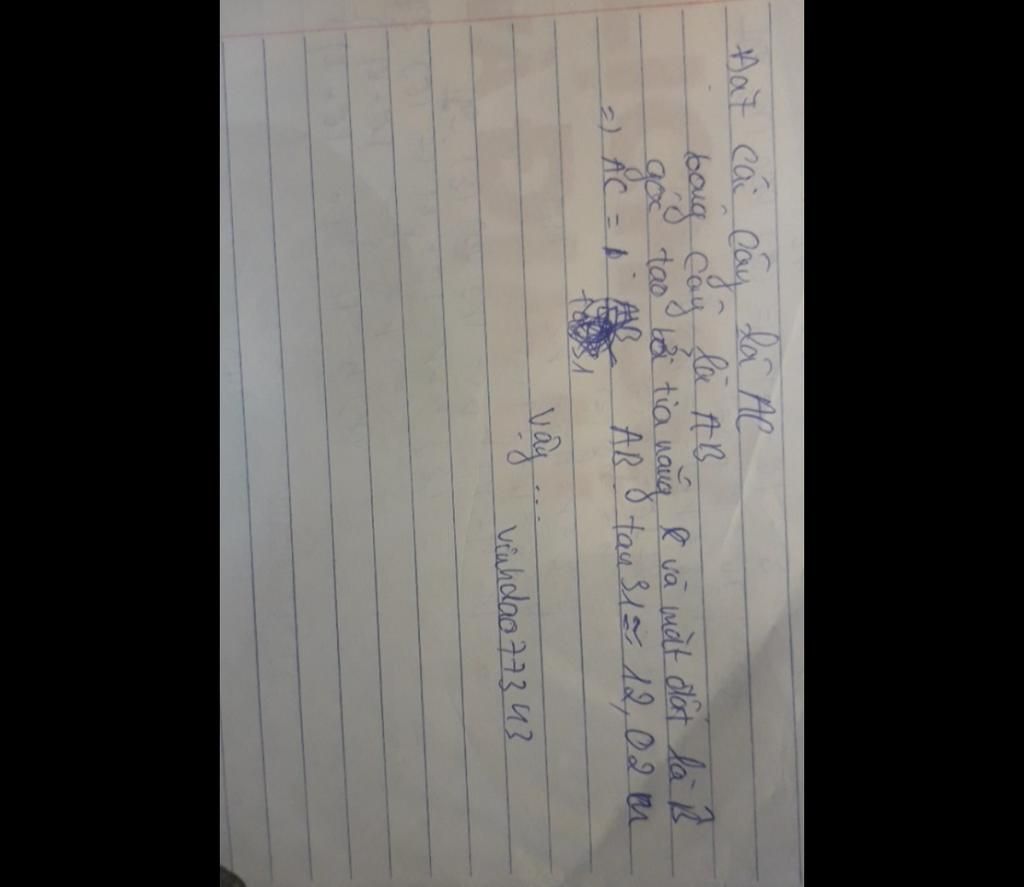 Đặt cái cây là AC
bóng cây là AB
góc tạo bởi tia nắng và mặt đất là B̂
=) AC = AB tan 31 ≈ 12,02 m
Vậy ...
vinhdao77343